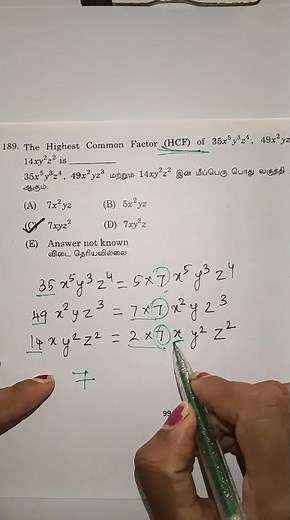 189. The Highest Common Factor (HCF) of 35x⁵y³z⁴, 49x²yz
14xy²z² is
35x⁵y³z⁴, 49x²yz³ மற்றும் 14xy²z² இன் மீப்பெரு பொது வகுத்தி
ஆகும்.
(A) 7x²yz (B) 5x²yz
(C) 7xyz² (D) 7xy²z
(E) Answer not known
விடை தெரியவில்லை
35x⁵y³z⁴ = 5×7 x⁵y³z⁴
49x²yz³ = 7×7 x²yz³
14xy²z² = 2×7 x y²z²
7
99